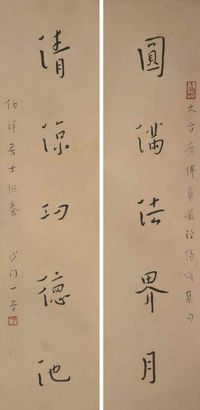 大方廣佛華嚴經偈頌集句
圓滿法界月
清涼功德池
伯祥居士供養
沙門一音